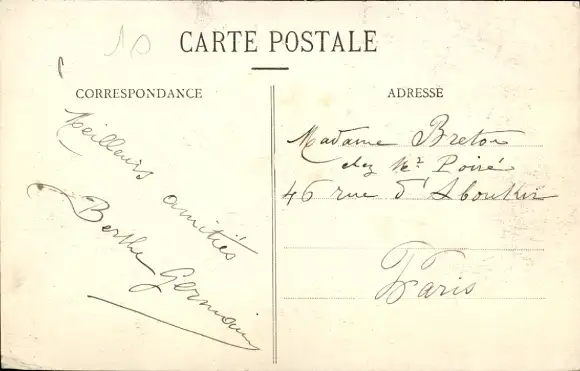 10
CARTE POSTALE
CORRESPONDANCE
Meilleurs amitiés
Berthe Germain
ADRESSE
Madame Breton
chez Mr Poiré
46 rue d'Aboukir
Paris